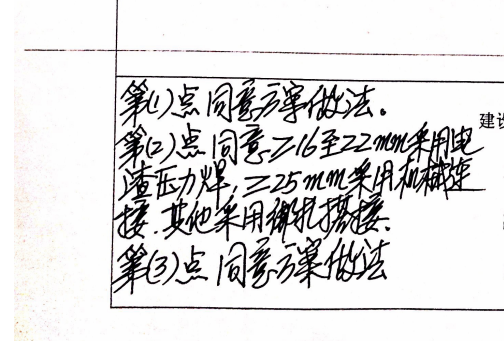 第(1)点同意方案做法。
建设
第(2)点同意≥16至22mm采用电
渣压力焊,≥25mm采用机械连
接.其他采用绑扎搭接.
第(3)点同意方案做法